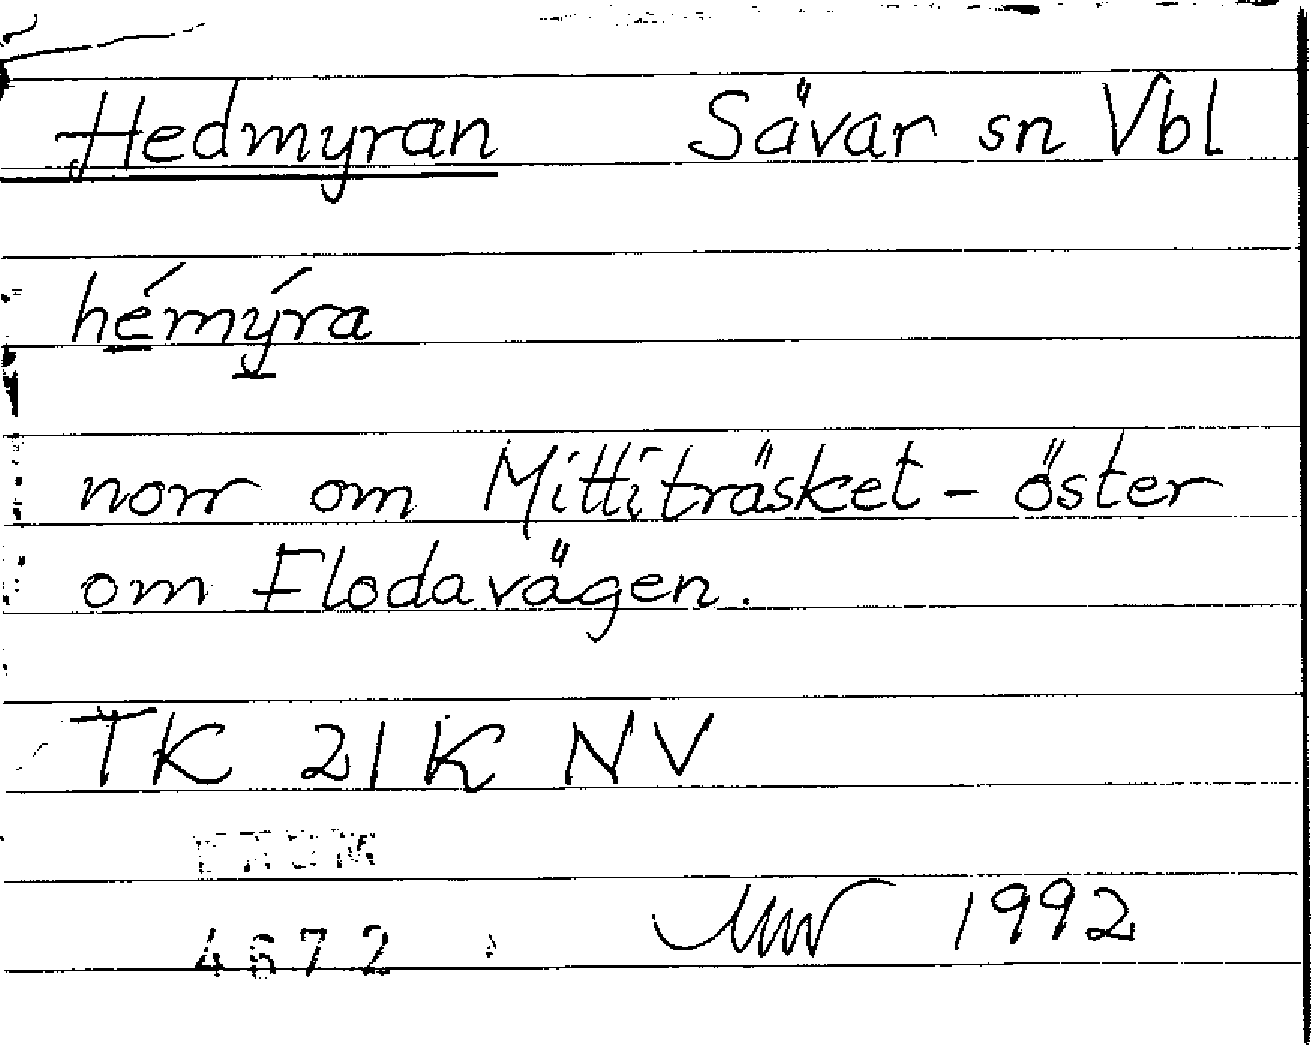 Hedmyran Sävar sn Vbl
hémýra
norr om Mittiträsket - öster
om Flodavägen.
TK 21 K NV
4672 1992